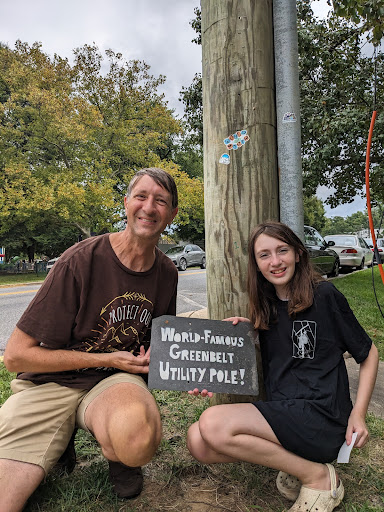 PROTECT OU
WORLD-FAMOUS
GREENBELT
UTILITY POLE!